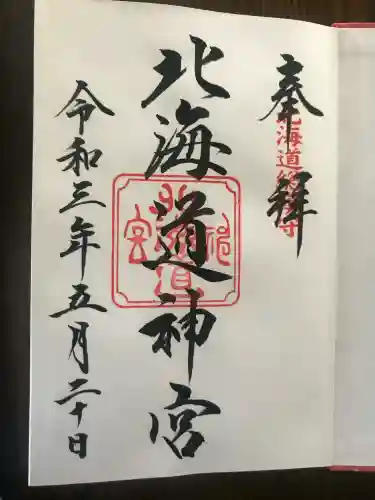 奉拝
北海道総鎮守
北海道神宮
北海道神宮
令和三年五月二十日